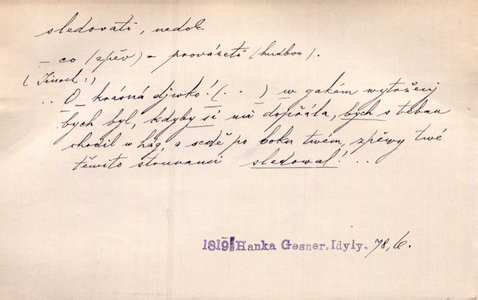 sledovati, nedok.
– co (zpěv) = prováseti (hudbou).
(Jinoch:)
.. O krásná djwko! (. . ) w gakém wytrženj
bych byl, kdyby si mi dopřála, bych s tebou
chodil w hág, a sedě po boku twém, zpěwy twé
těmito strunami sledowal! ..
1819 Hanka Gesner. Idyly. 78,